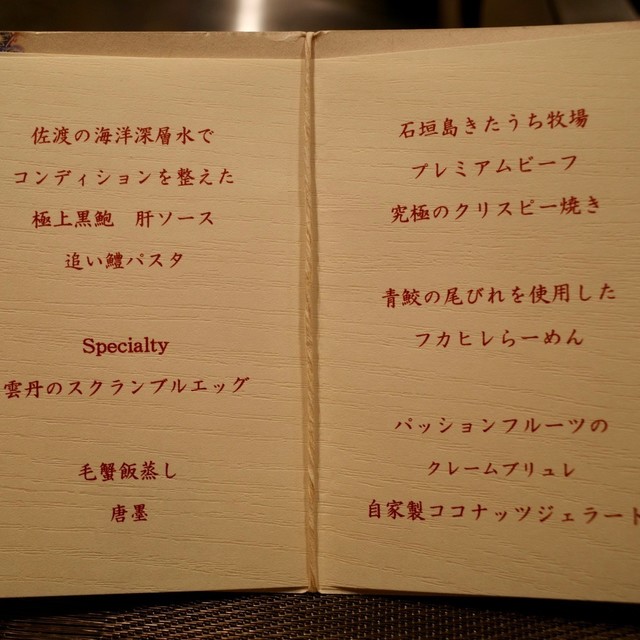 佐渡の海洋深層水で
コンディションを整えた
極上黒鮑　肝ソース
追い鱧パスタ
Specialty
雲丹のスクランブルエッグ
毛蟹飯蒸し
唐墨
石垣島きたうち牧場
プレミアムビーフ
究極のクリスピー焼き
青鮫の尾びれを使用した
フカヒレらーめん
パッションフルーツの
クレームブリュレ
自家製ココナッツジェラート